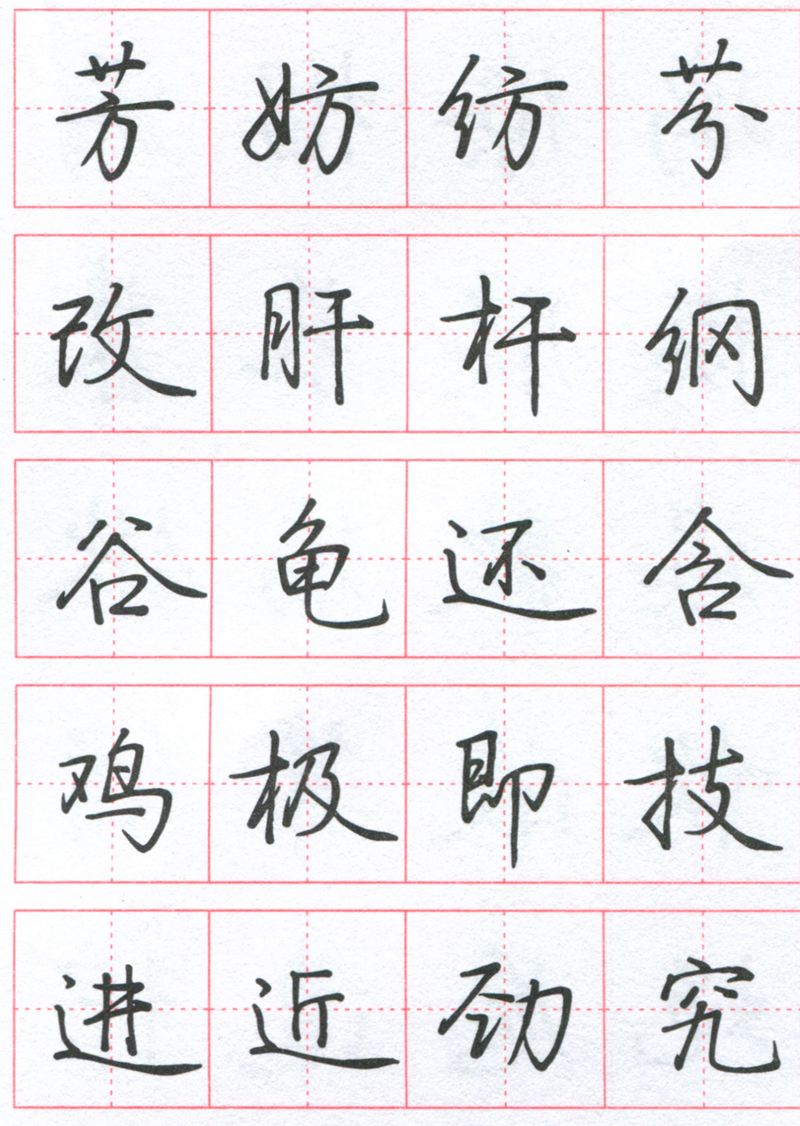 芳妨纺芬
改肝杆纲
谷龟还含
鸡极即技
进近劲究